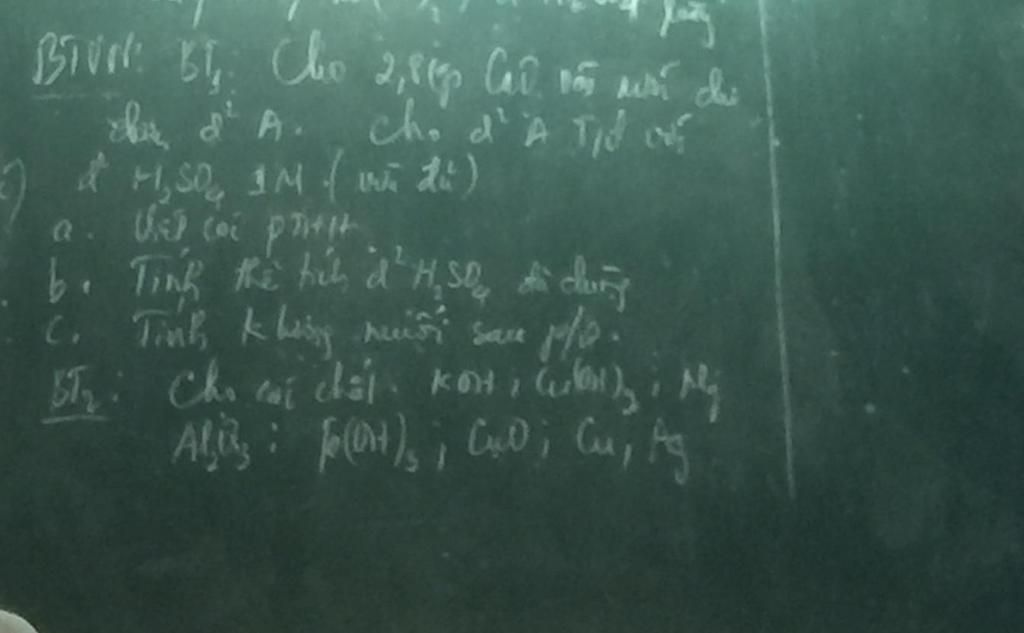 BTVN: BT1. Cho 2,8(g) CaO với nước dư
được d² A. Cho d² A T/d với
d² H₂SO₄ 1M. (vừa đủ)
a. Viết các PTHH
b. Tính thể tích d² H₂SO₄ đã dùng
c. Tính k lượng muối sau p/ứ.
BT2: Cho các chất. KOH; Cu(OH)₂; Mg
Al₂O₃; Fe(OH)₃; CuO; Cu, Ag